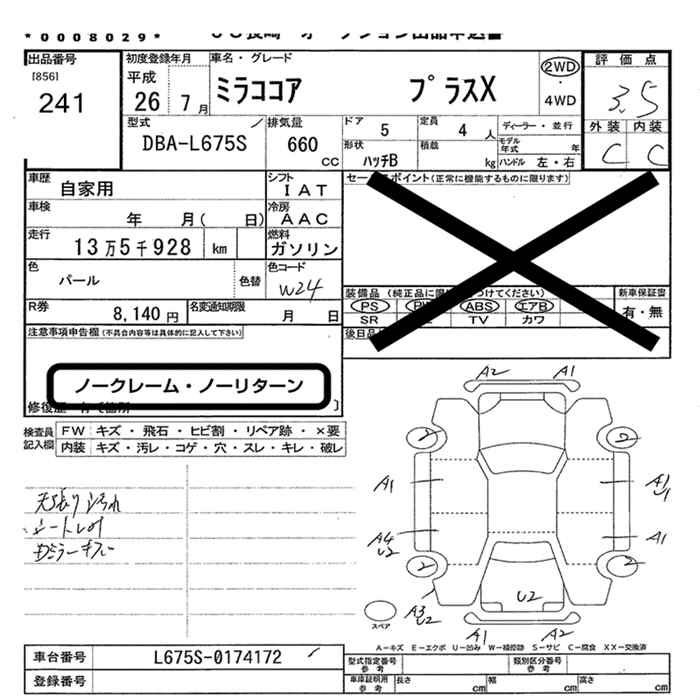 *0008029*
出品番号
[856]
241
初度登録年月
平成
26 7月
車名・グレード
ミラココア プラスX
2WD
・
4WD
評価点
3.5
外装 内装
C C
型式
DBA-L675S
排気量
660
CC
ドア
5
定員
4人
ディーラー・並行
モデル年式 年
形状
ハッチB
積載
kg
ハンドル 左・右
車歴
自家用
シフト
IAT
車検
年 月( 日)
冷房
AAC
走行
13万5千928 km
燃料
ガソリン
色
パール
色替
色コード
W24
R券
8,140円
名変通知期限
月 日
注意事項申告欄(不具合内容等は具体的に記入して下さい)
ノークレーム・ノーリターン
(正常に機能するものに限ります)
装備品
PS
ABS
エアB
SR
TV
カワ
新車保証書
有・無
検査員記入欄
FW キズ・飛石・ヒビ割・リペア跡・×要
内装 キズ・汚レ・コゲ・穴・スレ・キレ・破レ
天張り汚れ
A2 A1
2 2
A1 A1
U1
A4
U2
A1
2 2
U2
A3
U2
スペア
A1 A2
A−キズ E−エクボ U−凹み W−補修跡 S−サビ C−腐食 XX−交換済
車台番号
L675S-0174172
登録番号
型式指定番号
参考
類別区分番号
参考
車庫証明用
参考
長さ cm
幅 cm
高さ cm